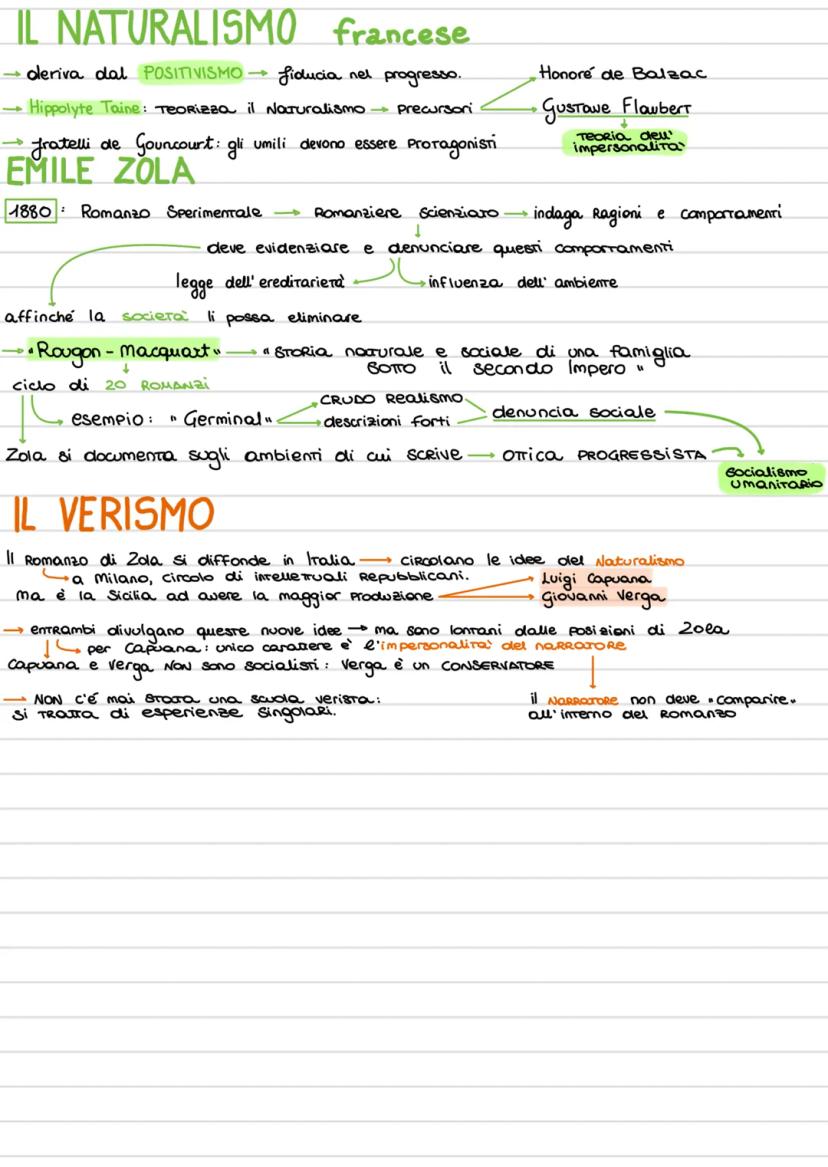 IL NATURALISMO francese
→ deriva dal POSITIVISMO → fiducia nel progresso. Honoré de Balzac
→ Hippolyte Taine: TEORIZZA il Naturalismo → precursori Gustave Flaubert
→ fratelli de Gouncourt: gli umili devono essere protagonisti
TEORIA dell'
impersonalità
EMILE ZOLA
1880: Romanzo Sperimentale → Romanziere scienziato → indaga Ragioni e comportamenti
deve evidenziare e denunciare questi comportamenti
legge dell'ereditarietà influenza dell'ambiente
affinché la società li possa eliminare
→ "Rougon-Macquart" → "STORIA naturale e sociale di una famiglia
SOTTO il secondo Impero"
ciclo di 20 ROMANZI
CRUDO Realismo
esempio: "Germinal" descrizioni forti denuncia sociale
Zola si documenta sugli ambienti di cui SCRIVE → OTTICA PROGRESSISTA
socialismo
umanitario
IL VERISMO
Il Romanzo di Zola si diffonde in Italia → circolano le idee del Naturalismo
a Milano, circolo di intellettuali Repubblicani. Luigi Capuana
ma è la Sicilia ad avere la maggior produzione Giovanni Verga
→ entrambi divulgano queste nuove idee → ma sono lontani dalle posizioni di Zola
per Capuana: unico carattere è l'impersonalità del NARRATORE
Capuana e Verga NON sono socialisti: Verga è un CONSERVATORE
→ NON c'é mai STATA una scuola verista: il NARRATORE non deve "comparire"
si TRATTA di esperienze singolari. all'interno del Romanzo